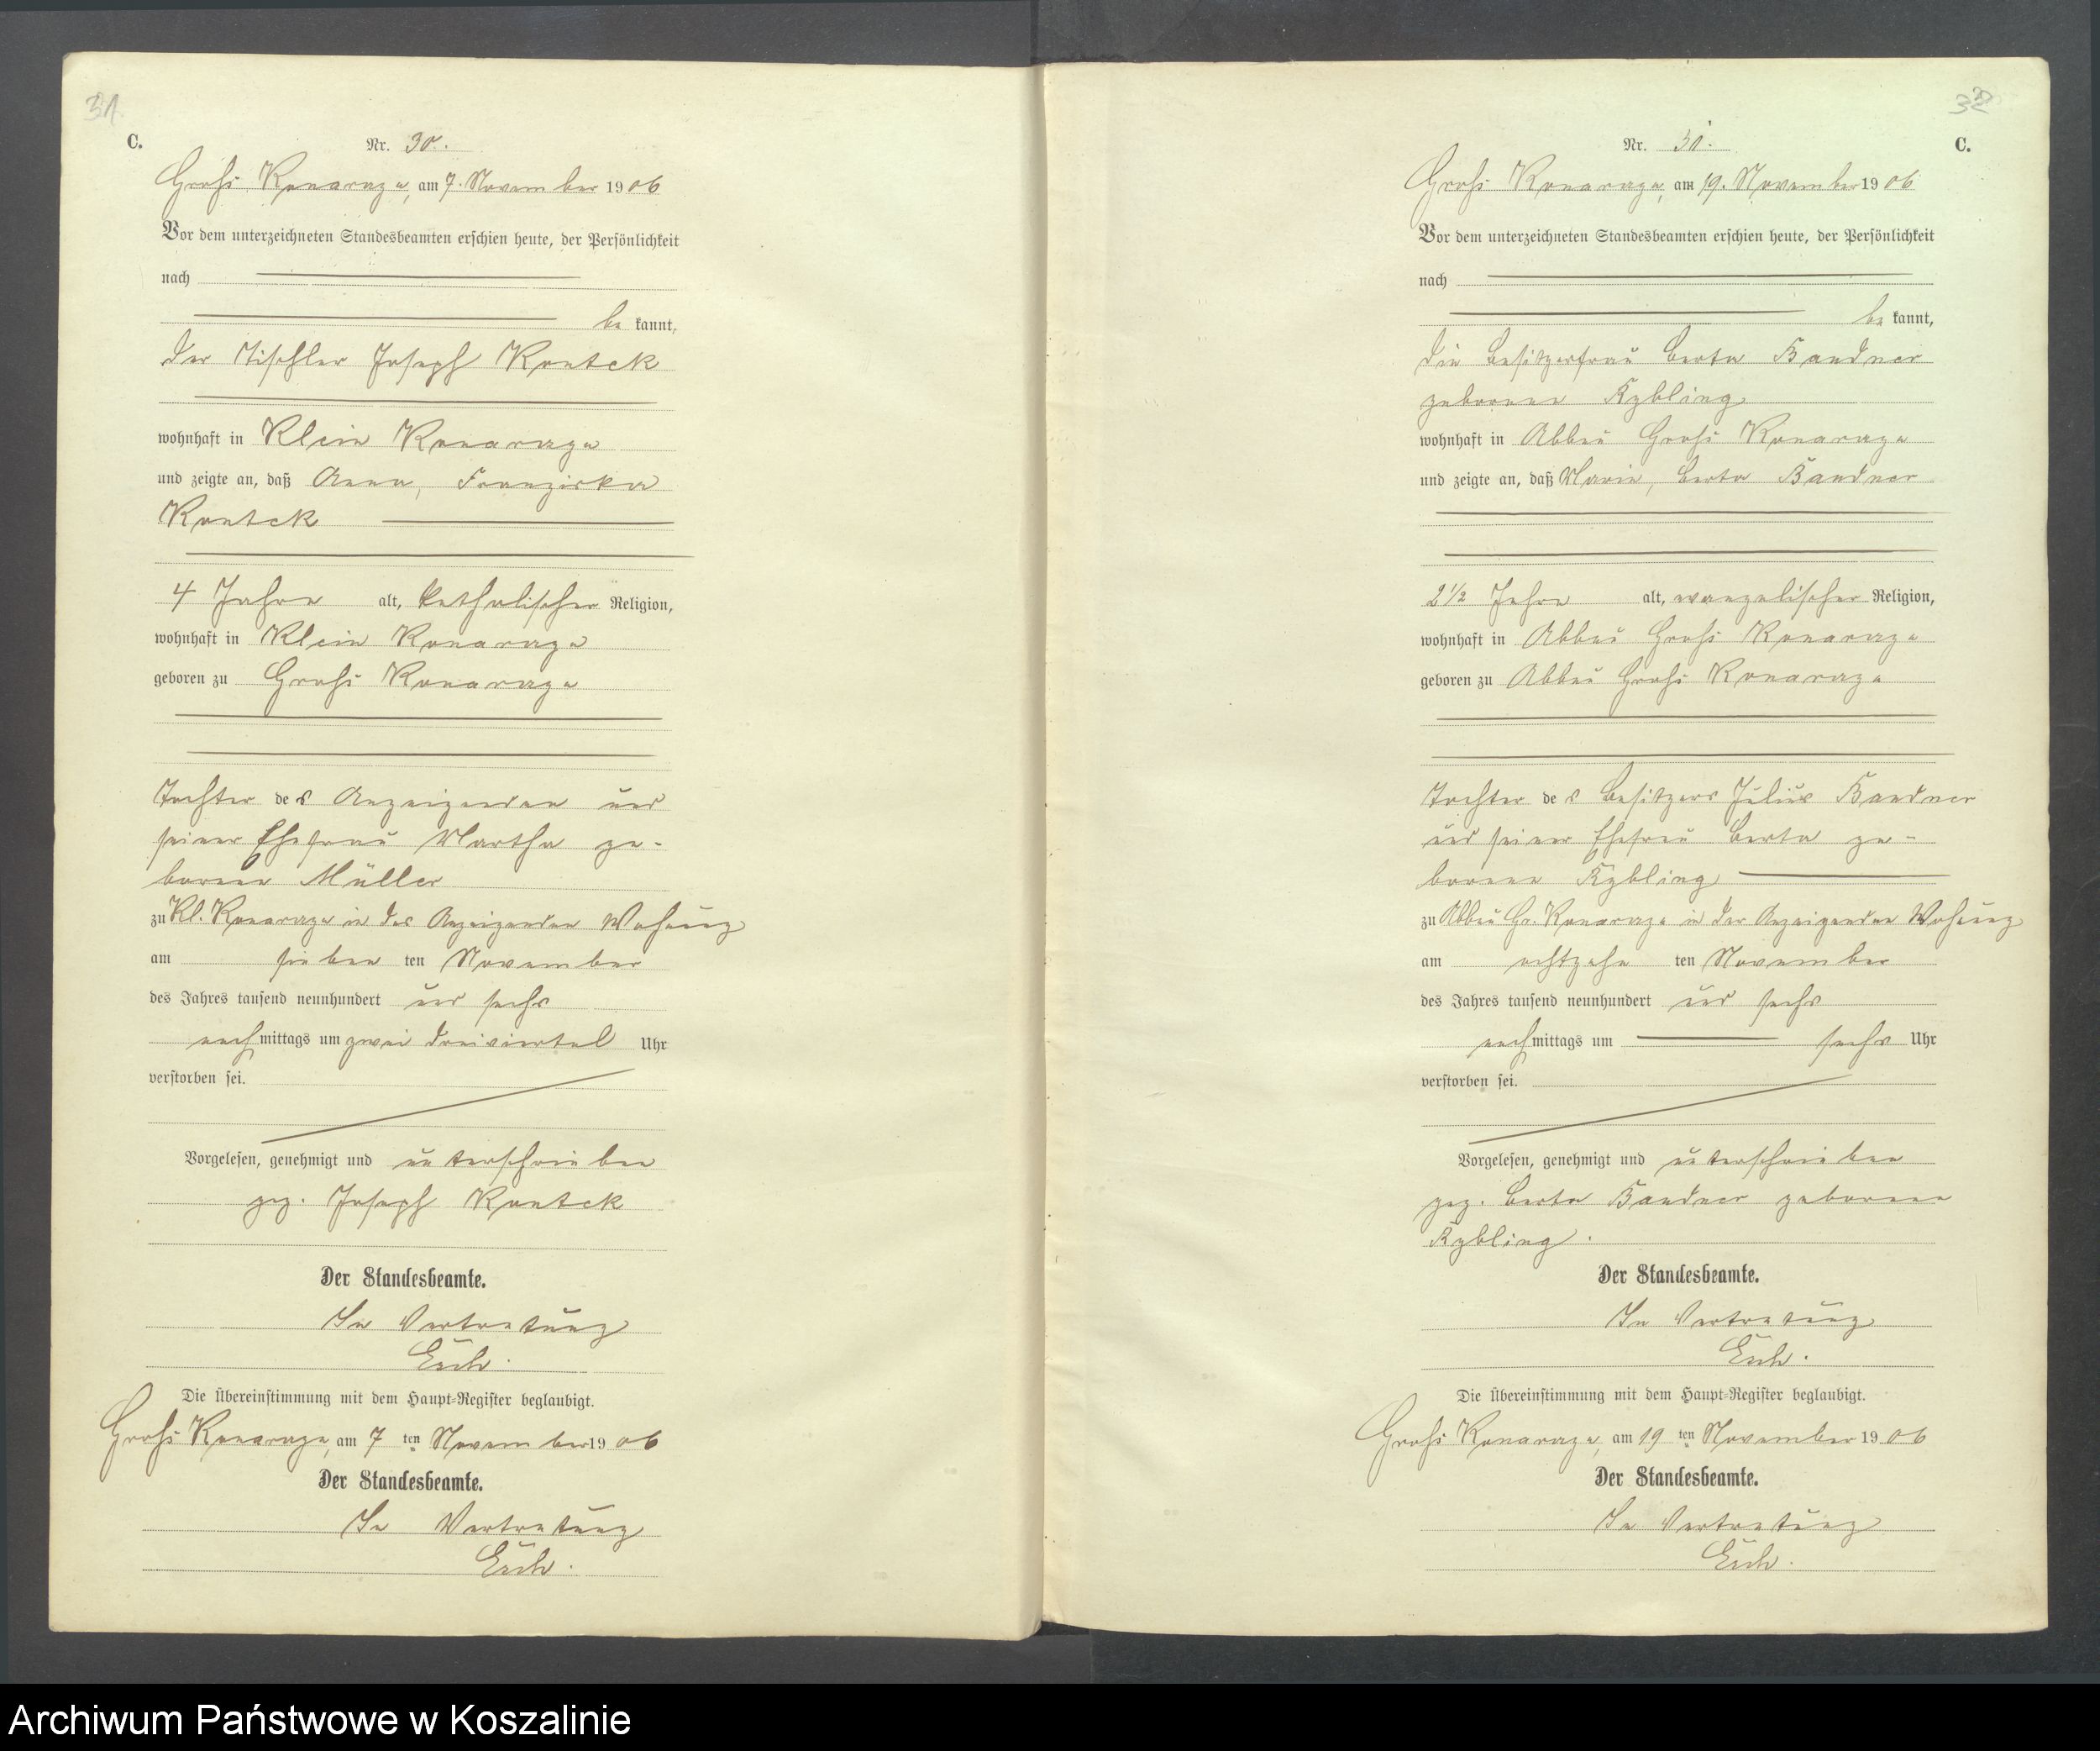 31
C.
Nr. 30.
Groß Konarczyn, am 7. November 1906
Vor dem unterzeichneten Standesbeamten erschien heute, der Persönlichkeit
nach
be kannt,
der Tischler Joseph Kontek
wohnhaft in Klein Konarczyn
und zeigte an, daß Anna, Franziska
Kontek
4 Jahre alt, katholischer Religion,
wohnhaft in Klein Konarczyn
geboren zu Groß Konarczyn
Tochter des Anzeigenden und
seiner Ehefrau Martha ge-
borene Müller
zu Kl. Konarczyn in des Anzeigenden Wohnung
am sieben ten November
des Jahres tausend neunhundert und sechs
nachmittags um zwei dreiviertel Uhr
verstorben sei.
Vorgelesen, genehmigt und unterschrieben
gez. Joseph Kontek
Der Standesbeamte.
In Vertretung
Die Übereinstimmung mit dem Haupt-Register beglaubigt.
Groß Konarczyn, am 7 ten November 1906
Der Standesbeamte.
In Vertretung
32
Nr. 31. C.
Groß Konarczyn, am 19. November 1906
Vor dem unterzeichneten Standesbeamten erschien heute, der Persönlichkeit
nach
be kannt,
die Besitzerfrau Berta Bandner
geborene Kybling
wohnhaft in Abbau Groß Konarczyn
und zeigte an, daß Marie, Berta Bandner
2 1/2 Jahre alt, evangelischer Religion,
wohnhaft in Abbau Groß Konarczyn
geboren zu Abbau Groß Konarczyn
Tochter des Besitzers Julius Bandner
und seiner Ehefrau Berta ge-
borene Kybling
zu Abbau Gr. Konarczyn in der Anzeigenden Wohnung
am achtzehn ten November
des Jahres tausend neunhundert und sechs
nachmittags um sechs Uhr
verstorben sei.
Vorgelesen, genehmigt und unterschrieben
gez. Berta Bandner geborene
Kybling.
Der Standesbeamte.
In Vertretung
Die Übereinstimmung mit dem Haupt-Register beglaubigt.
Groß Konarczyn, am 19 ten November 1906
Der Standesbeamte.
In Vertretung
Archiwum Państwowe w Koszalinie